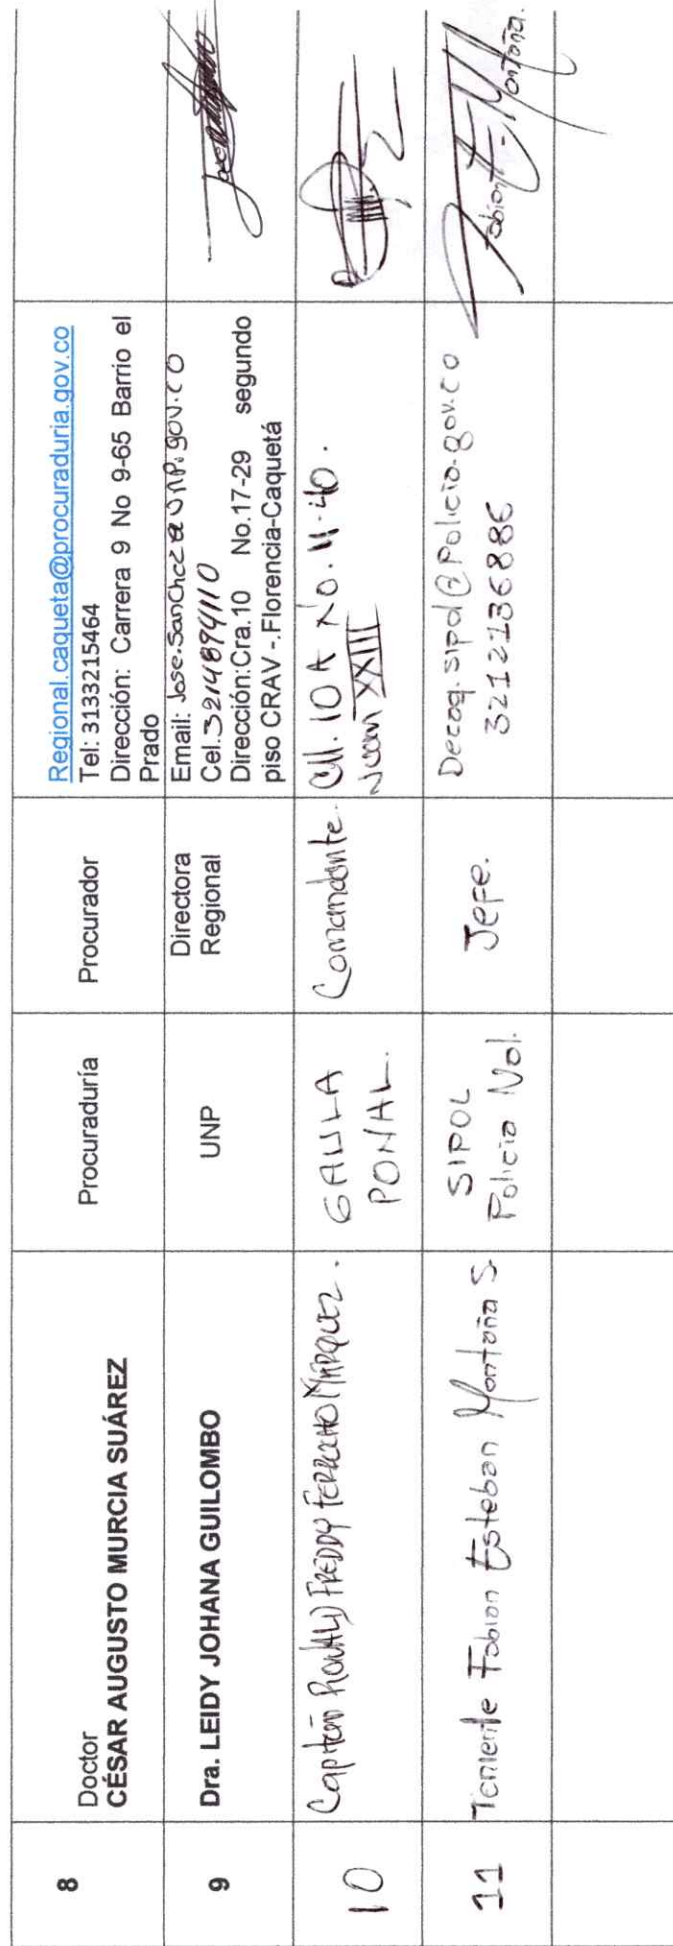 8
Doctor
CÉSAR AUGUSTO MURCIA SUÁREZ
Procuraduría
Procurador
Regional.caqueta@procuraduria.gov.co
Tel: 3133215464
Dirección: Carrera 9 No 9-65 Barrio el
Prado
9
Dra. LEIDY JOHANA GUILOMBO
UNP
Directora
Regional
Email: Jose.Sanchez@UNP.gov.co
Cel. 3214894110
Dirección:Cra.10 No.17-29 segundo
piso CRAV -.Florencia-Caquetá
10
Capitán FREDDY
GAULA
PONAL.
Comandante.
Cll. 10A No. 11-40.
Juan XXIII
11
Teniente Fabian Esteban Montaña S.
SIPOL
Policia Nal.
Jefe.
Decaq.sipol@Policia.gov.co
3212136886
Fabian E. Montaña.